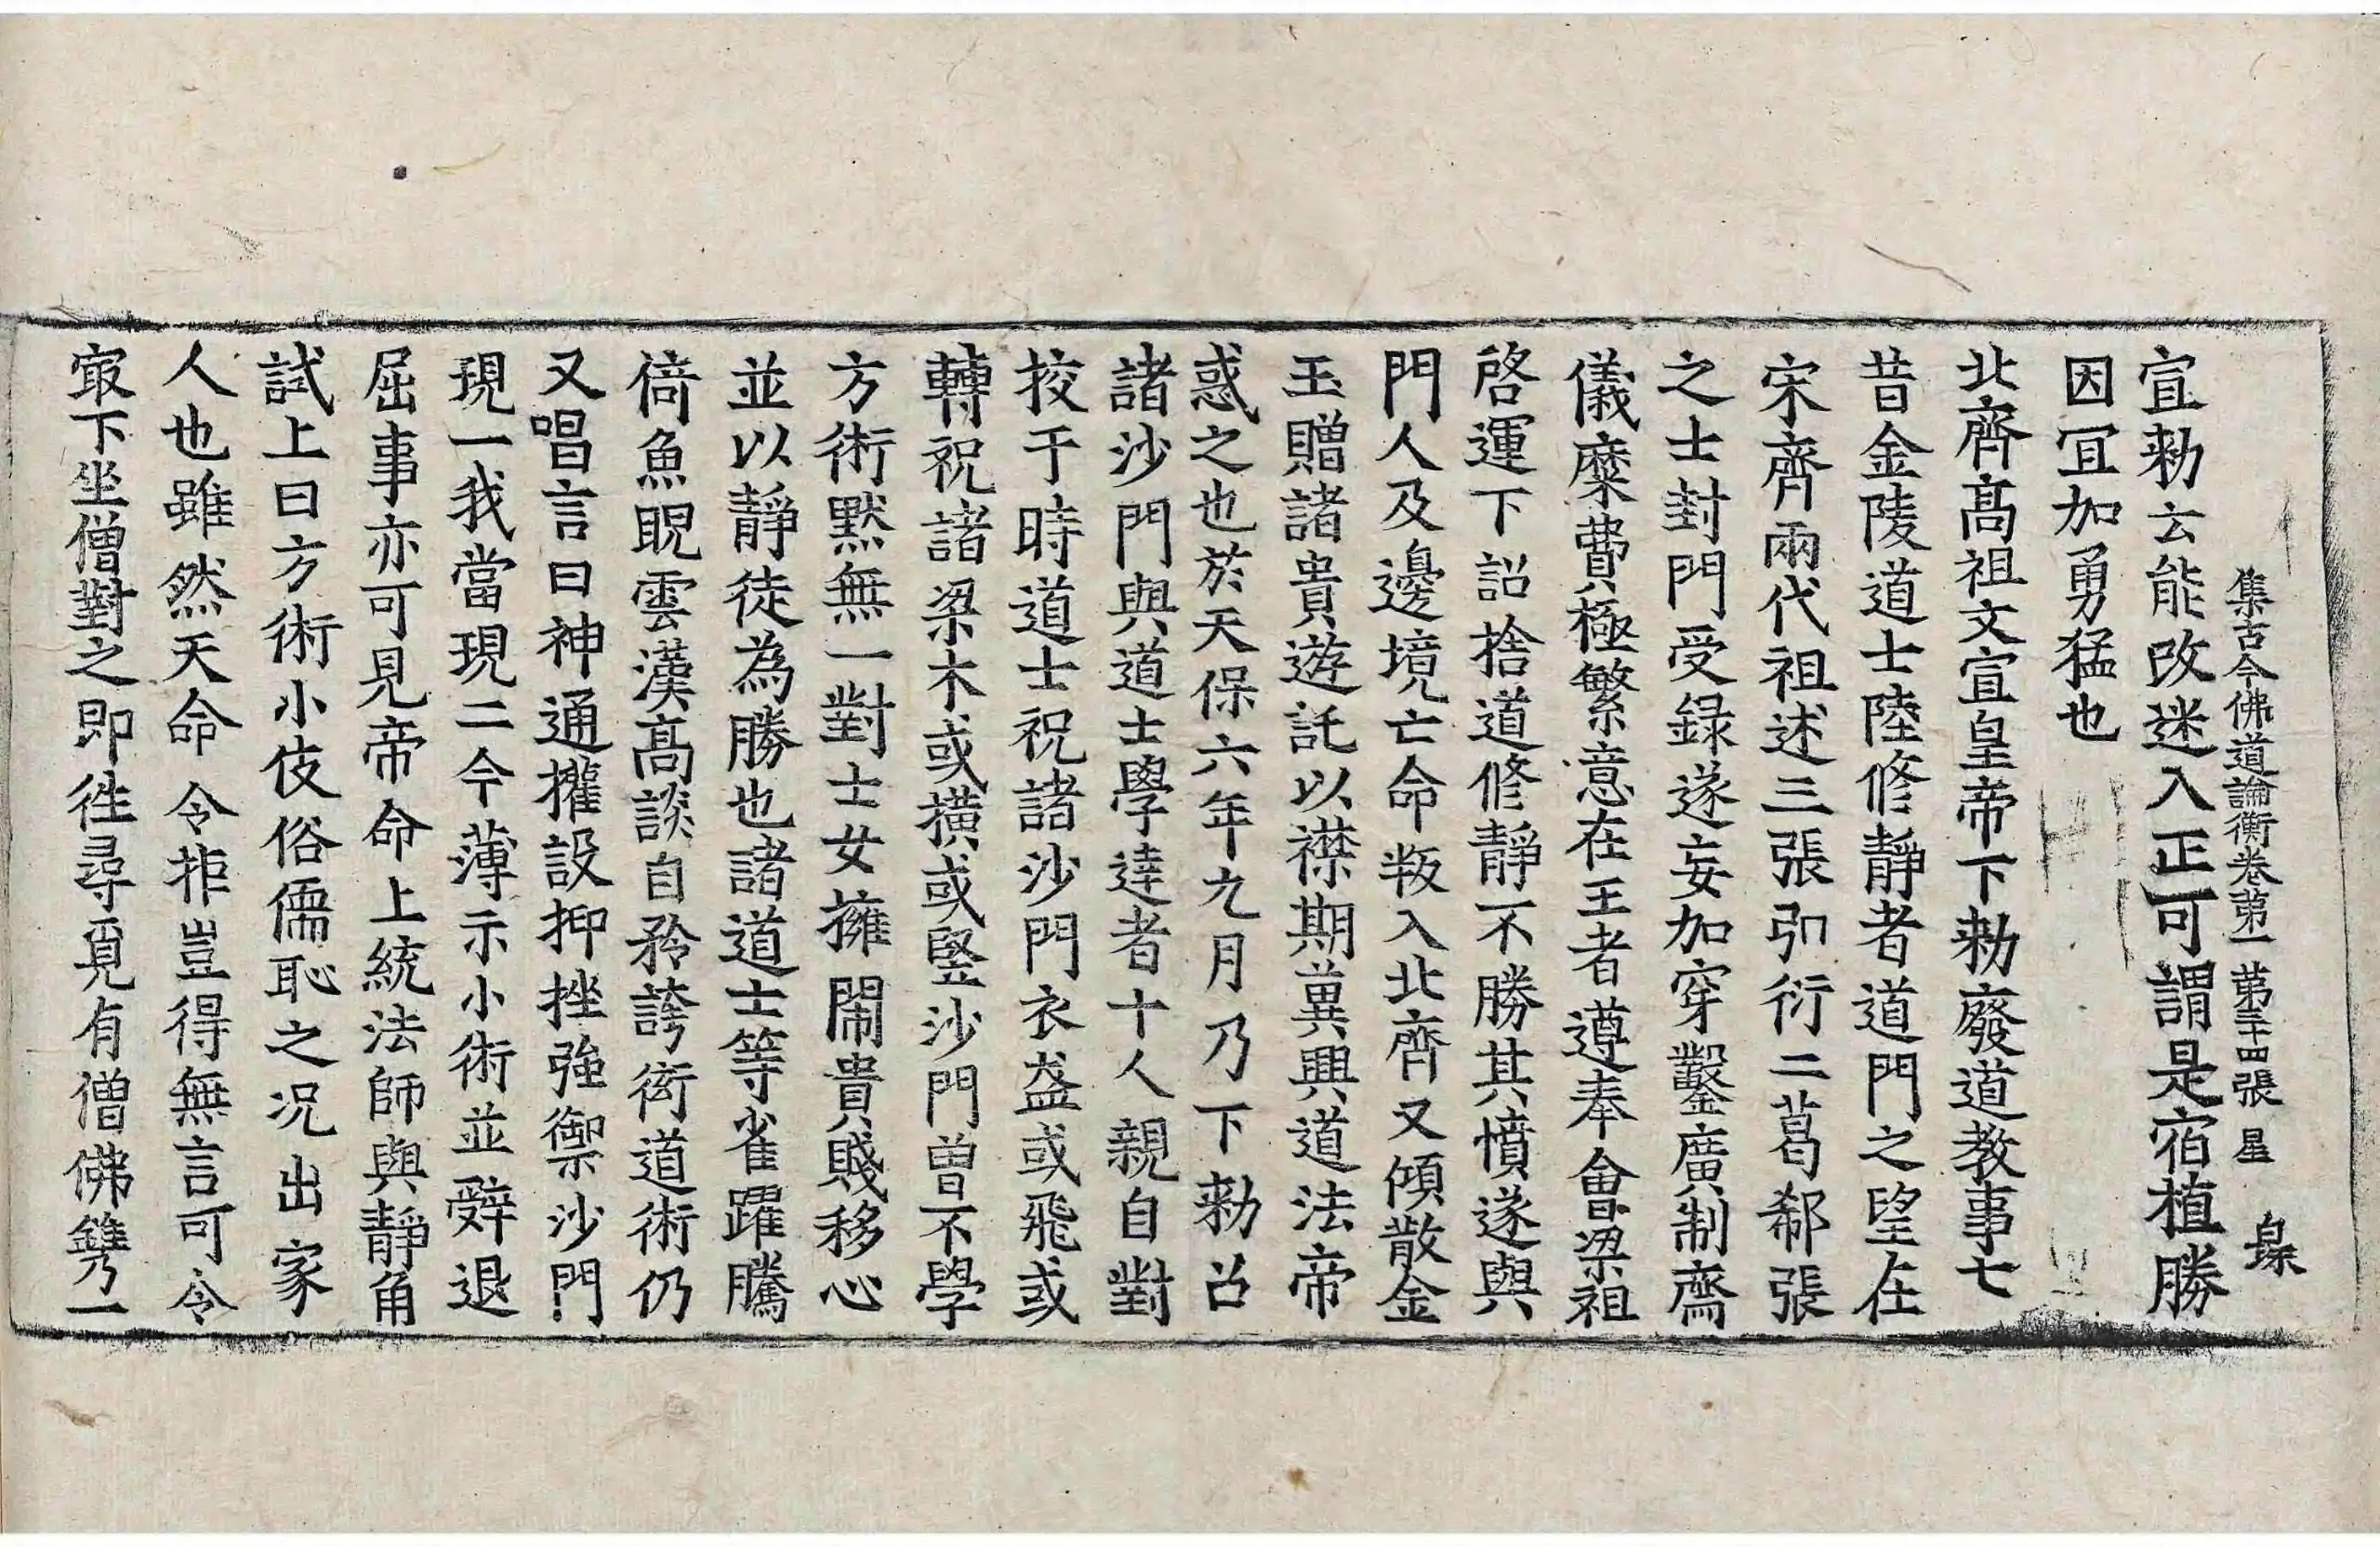 集古今佛道論衡卷第一 第三十四張 星 㬝
宣勑云能改迷入正可謂是宿植勝
因冝加勇猛也
北齊髙祖文宣皇帝下勑廢道教事七
昔金陵道士陸修靜者道門之望在
宋齊兩代祖述三張弘衍二葛郗張
之士封門受録遂妄加穿鑿廣制齋
儀糜費極繁意在王者遵奉會梁祖
啓運下詔捨道修靜不勝其憤遂與
門人及邊境亡命叛入北齊又傾散金
玉贈諸貴遊託以襟期兾興道法帝
惑之也於天保六年九月乃下勑召
諸沙門與道士學達者十人親自對
挍于時道士祝諸沙門衣盋或飛或
轉祝諸梁木或橫或竪沙門曽不學
方術黙無一對士女擁閙貴賤移心
並以靜徒為勝也諸道士等雀躍騰
倚魚睨雲漢髙談自矜誇衒道術仍
又唱言曰神通攉設抑挫強禦沙門
現一我當現二今薄示小術並辤退
屈事亦可見帝命上統法師與靜角
試上曰方術小伎俗儒恥之况出家
人也雖然天命令拒豈得無言可令
㝡下坐僧對之即徃尋覓有僧佛雋一